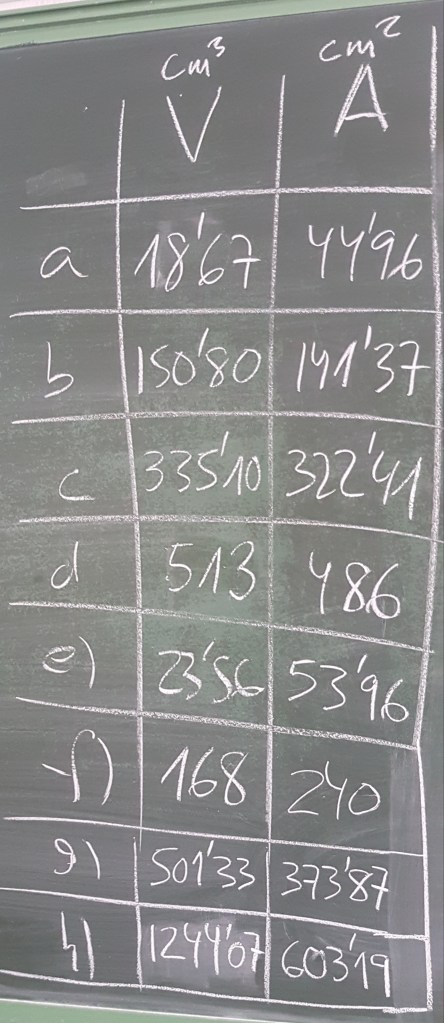 cm³ cm²
V A
a 18'67 44'96
b 150'80 141'37
c 335'10 322'41
d 513 486
e) 23'56 53'96
f) 168 240
g) 501'33 373'87
h) 1244'07 603'19